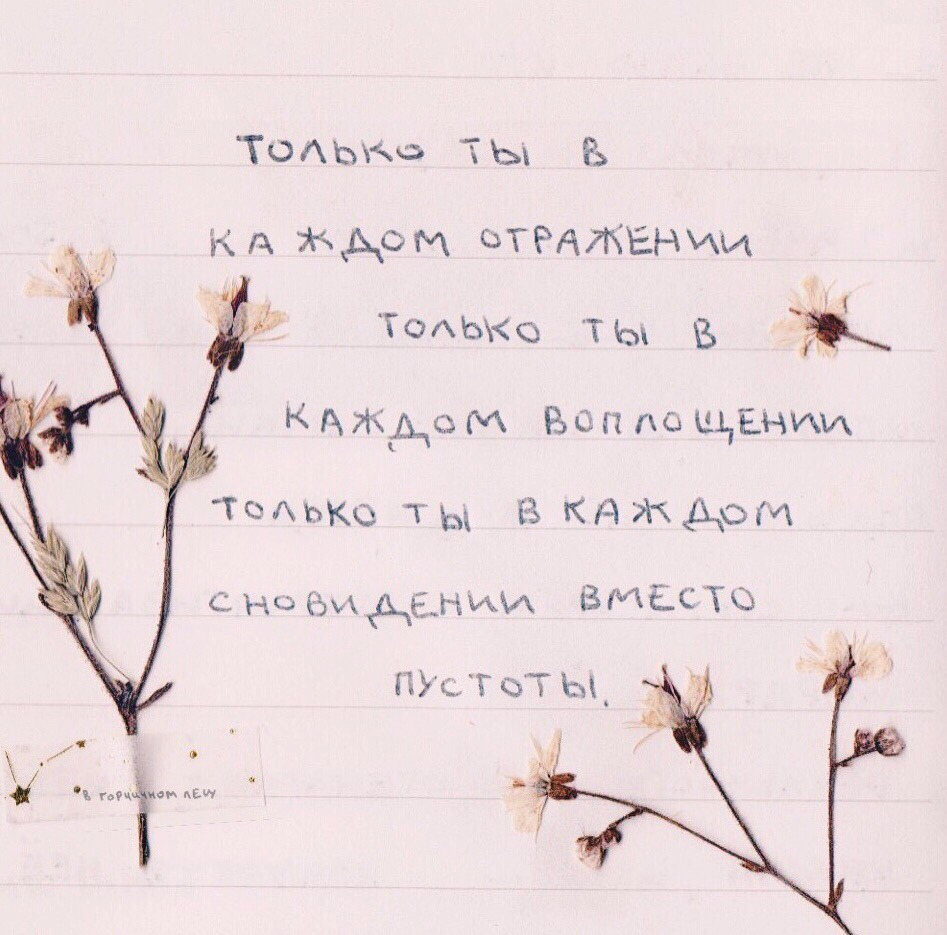 ТОЛЬКО ТЫ В
КАЖДОМ ОТРАЖЕНИИ
ТОЛЬКО ТЫ В
КАЖДОМ ВОПЛОЩЕНИИ
ТОЛЬКО ТЫ В КАЖДОМ
СНОВИДЕНИИ ВМЕСТО
ПУСТОТЫ.
В ГОРЧИЧНОМ ЛЕСУ